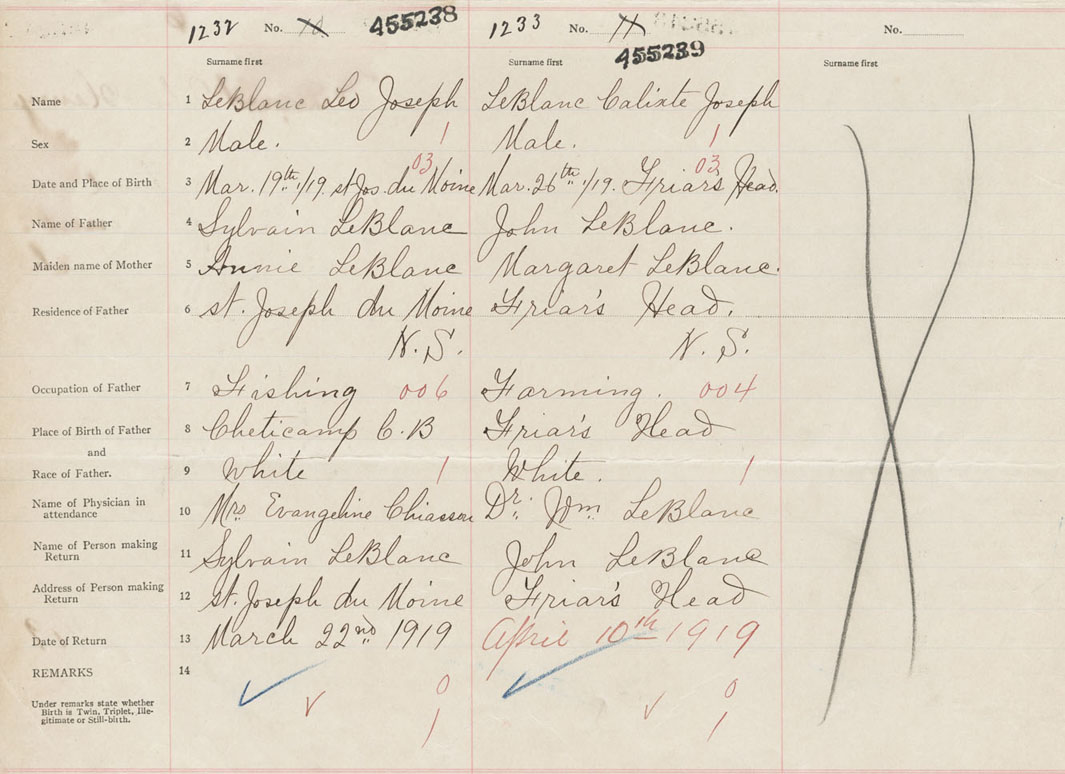 1232 No. 10 455238 1233 No. 11 455239 No.
Surname first Surname first Surname first
Name 1 LeBlanc Leo Joseph LeBlanc Calixte Joseph
Sex 2 Male. 1 Male. 1
03 03
Date and Place of Birth 3 Mar. 19th, /19. st Jos. du Moine Mar. 26th, /19. Friar's Head.
Name of Father 4 Sylvain LeBlanc John LeBlanc.
Maiden name of Mother 5 Annie LeBlanc Margaret LeBlanc.
Residence of Father 6 st. Joseph du Moine Friar's Head.
N.S. N.S.
Occupation of Father 7 Fishing 006 Farming. 004
Place of Birth of Father 8 Cheticamp C.B Friar's Head
and
Race of Father. 9 White 1 White. 1
Name of Physician in
attendance 10 Mrs Evangeline Chiasson Dr. Wm LeBlanc
Name of Person making
Return 11 Sylvain LeBlanc John LeBlanc
Address of Person making
Return 12 st. Joseph du Moine Friar's Head
Date of Return 13 March 22nd 1919 April 10th 1919
REMARKS 14
0 0
Under remarks state whether
Birth is Twin, Triplet, Ille-
gitimate or Still-birth.
1 1